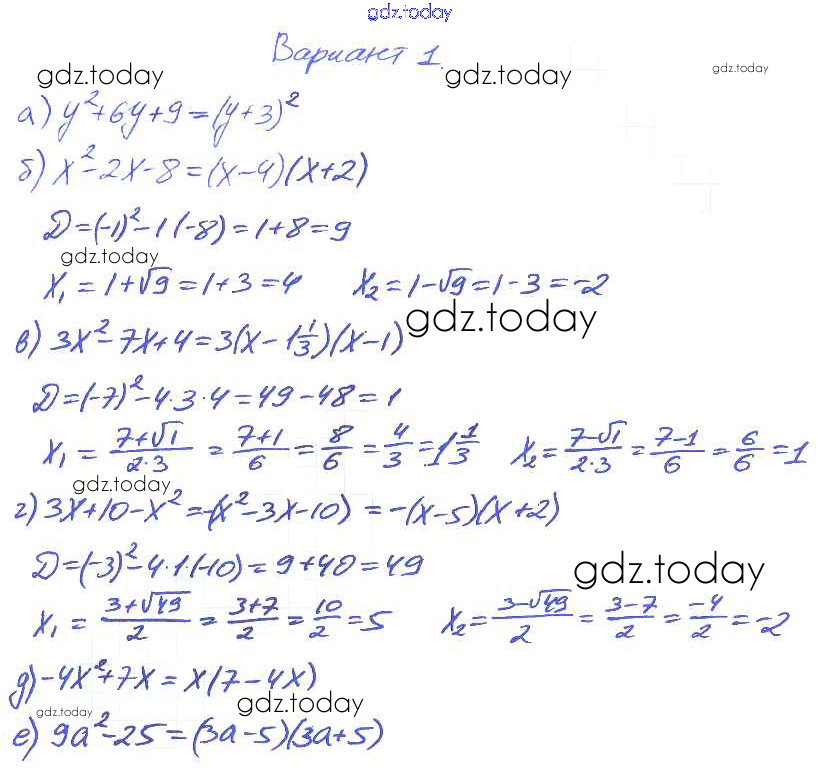 gdz.today
Вариант 1.
gdz.today gdz.today gdz.today
а) y²+6y+9=(y+3)²
б) x²-2x-8=(x-4)(x+2)
D=(-1)²-1·(-8)=1+8=9
gdz.today
x₁=1+√9=1+3=4 x₂=1-√9=1-3=-2
gdz.today
в) 3x²-7x+4=3(x-1 1/3)(x-1)
D=(-7)²-4·3·4=49-48=1
x₁=(7+√1)/(2·3)=(7+1)/6=8/6=4/3=1 1/3 x₂=(7-√1)/(2·3)=(7-1)/6=6/6=1
gdz.today
г) 3x+10-x²=-(x²-3x-10)=-(x-5)(x+2)
D=(-3)²-4·1·(-10)=9+40=49
gdz.today
x₁=(3+√49)/2=(3+7)/2=10/2=5 x₂=(3-√49)/2=(3-7)/2=-4/2=-2
д) -4x²+7x=x(7-4x)
gdz.today gdz.today
е) 9a²-25=(3a-5)(3a+5)